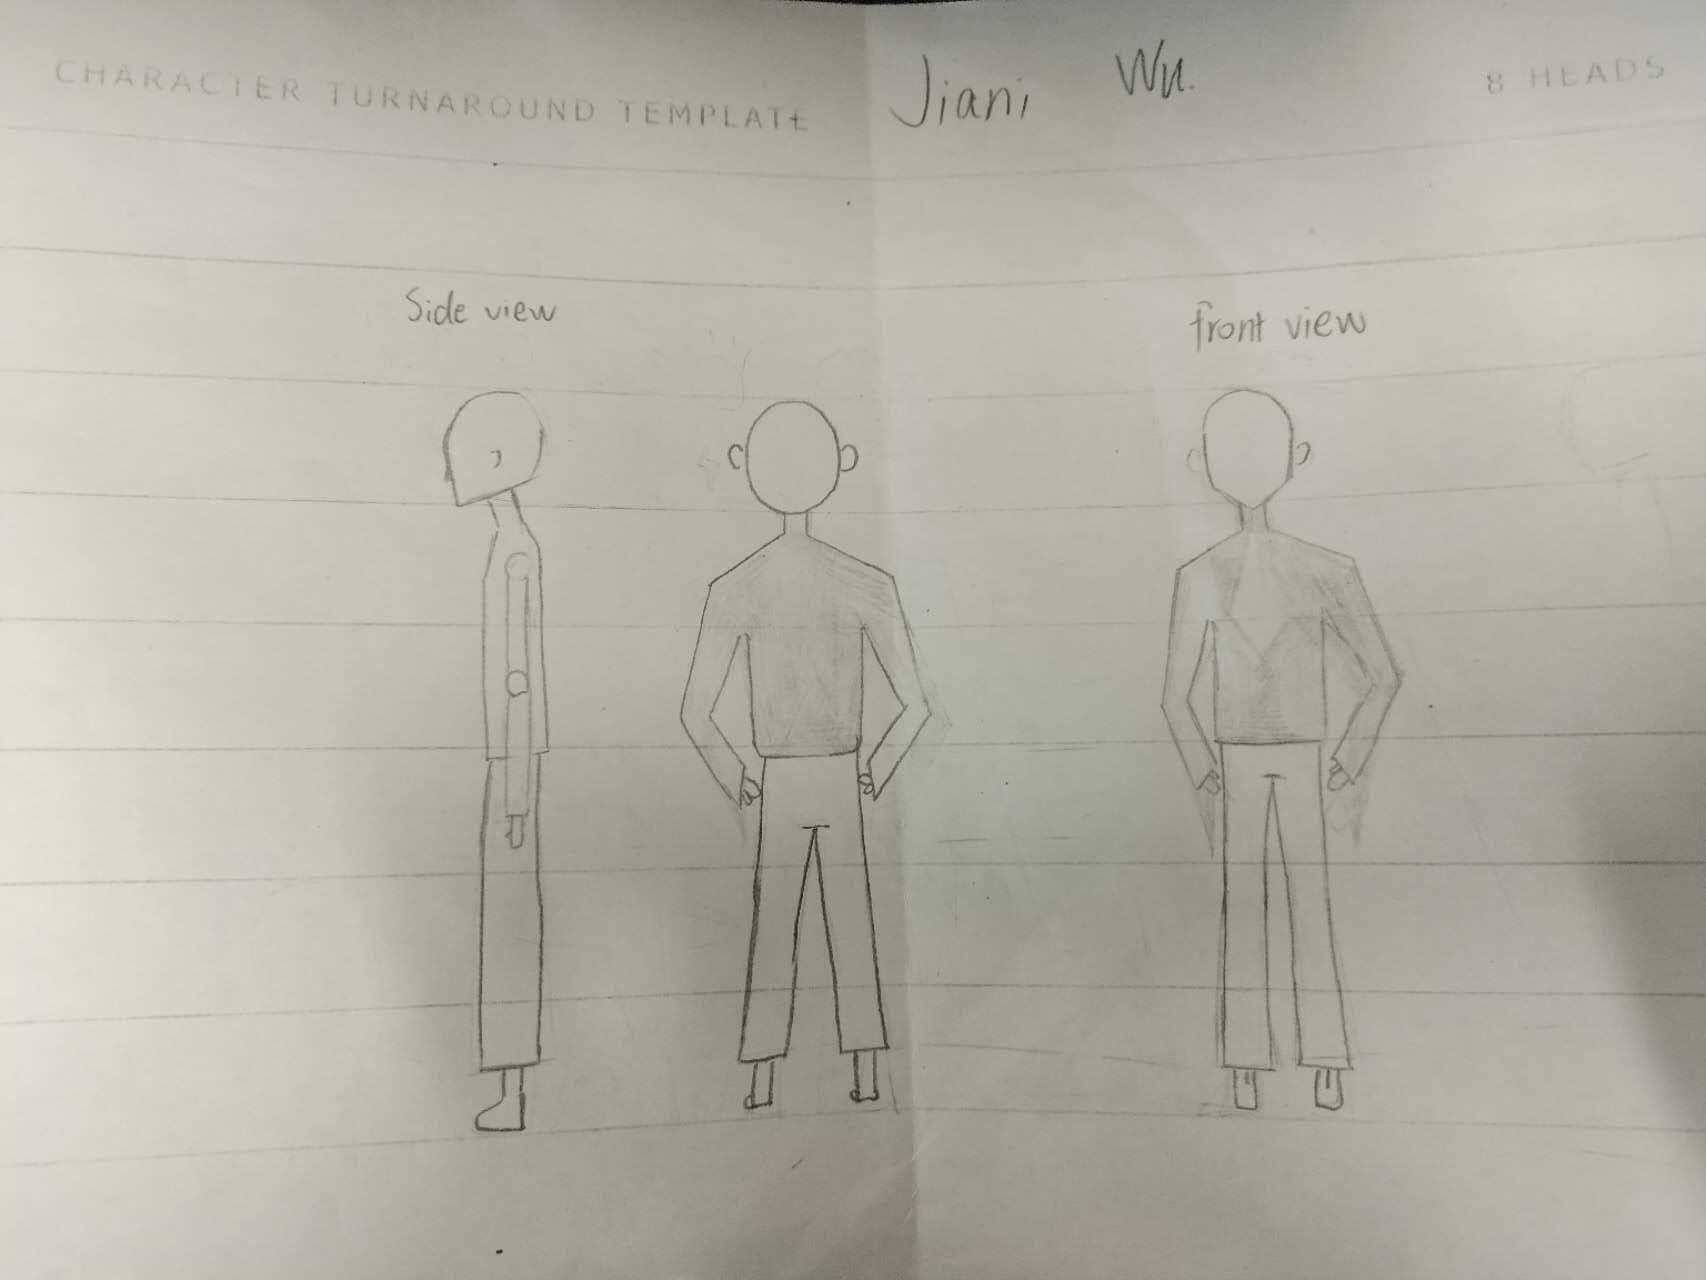 CHARACTER TURNAROUND TEMPLATE Jiani Wu. 8 HEADS
Side view front view